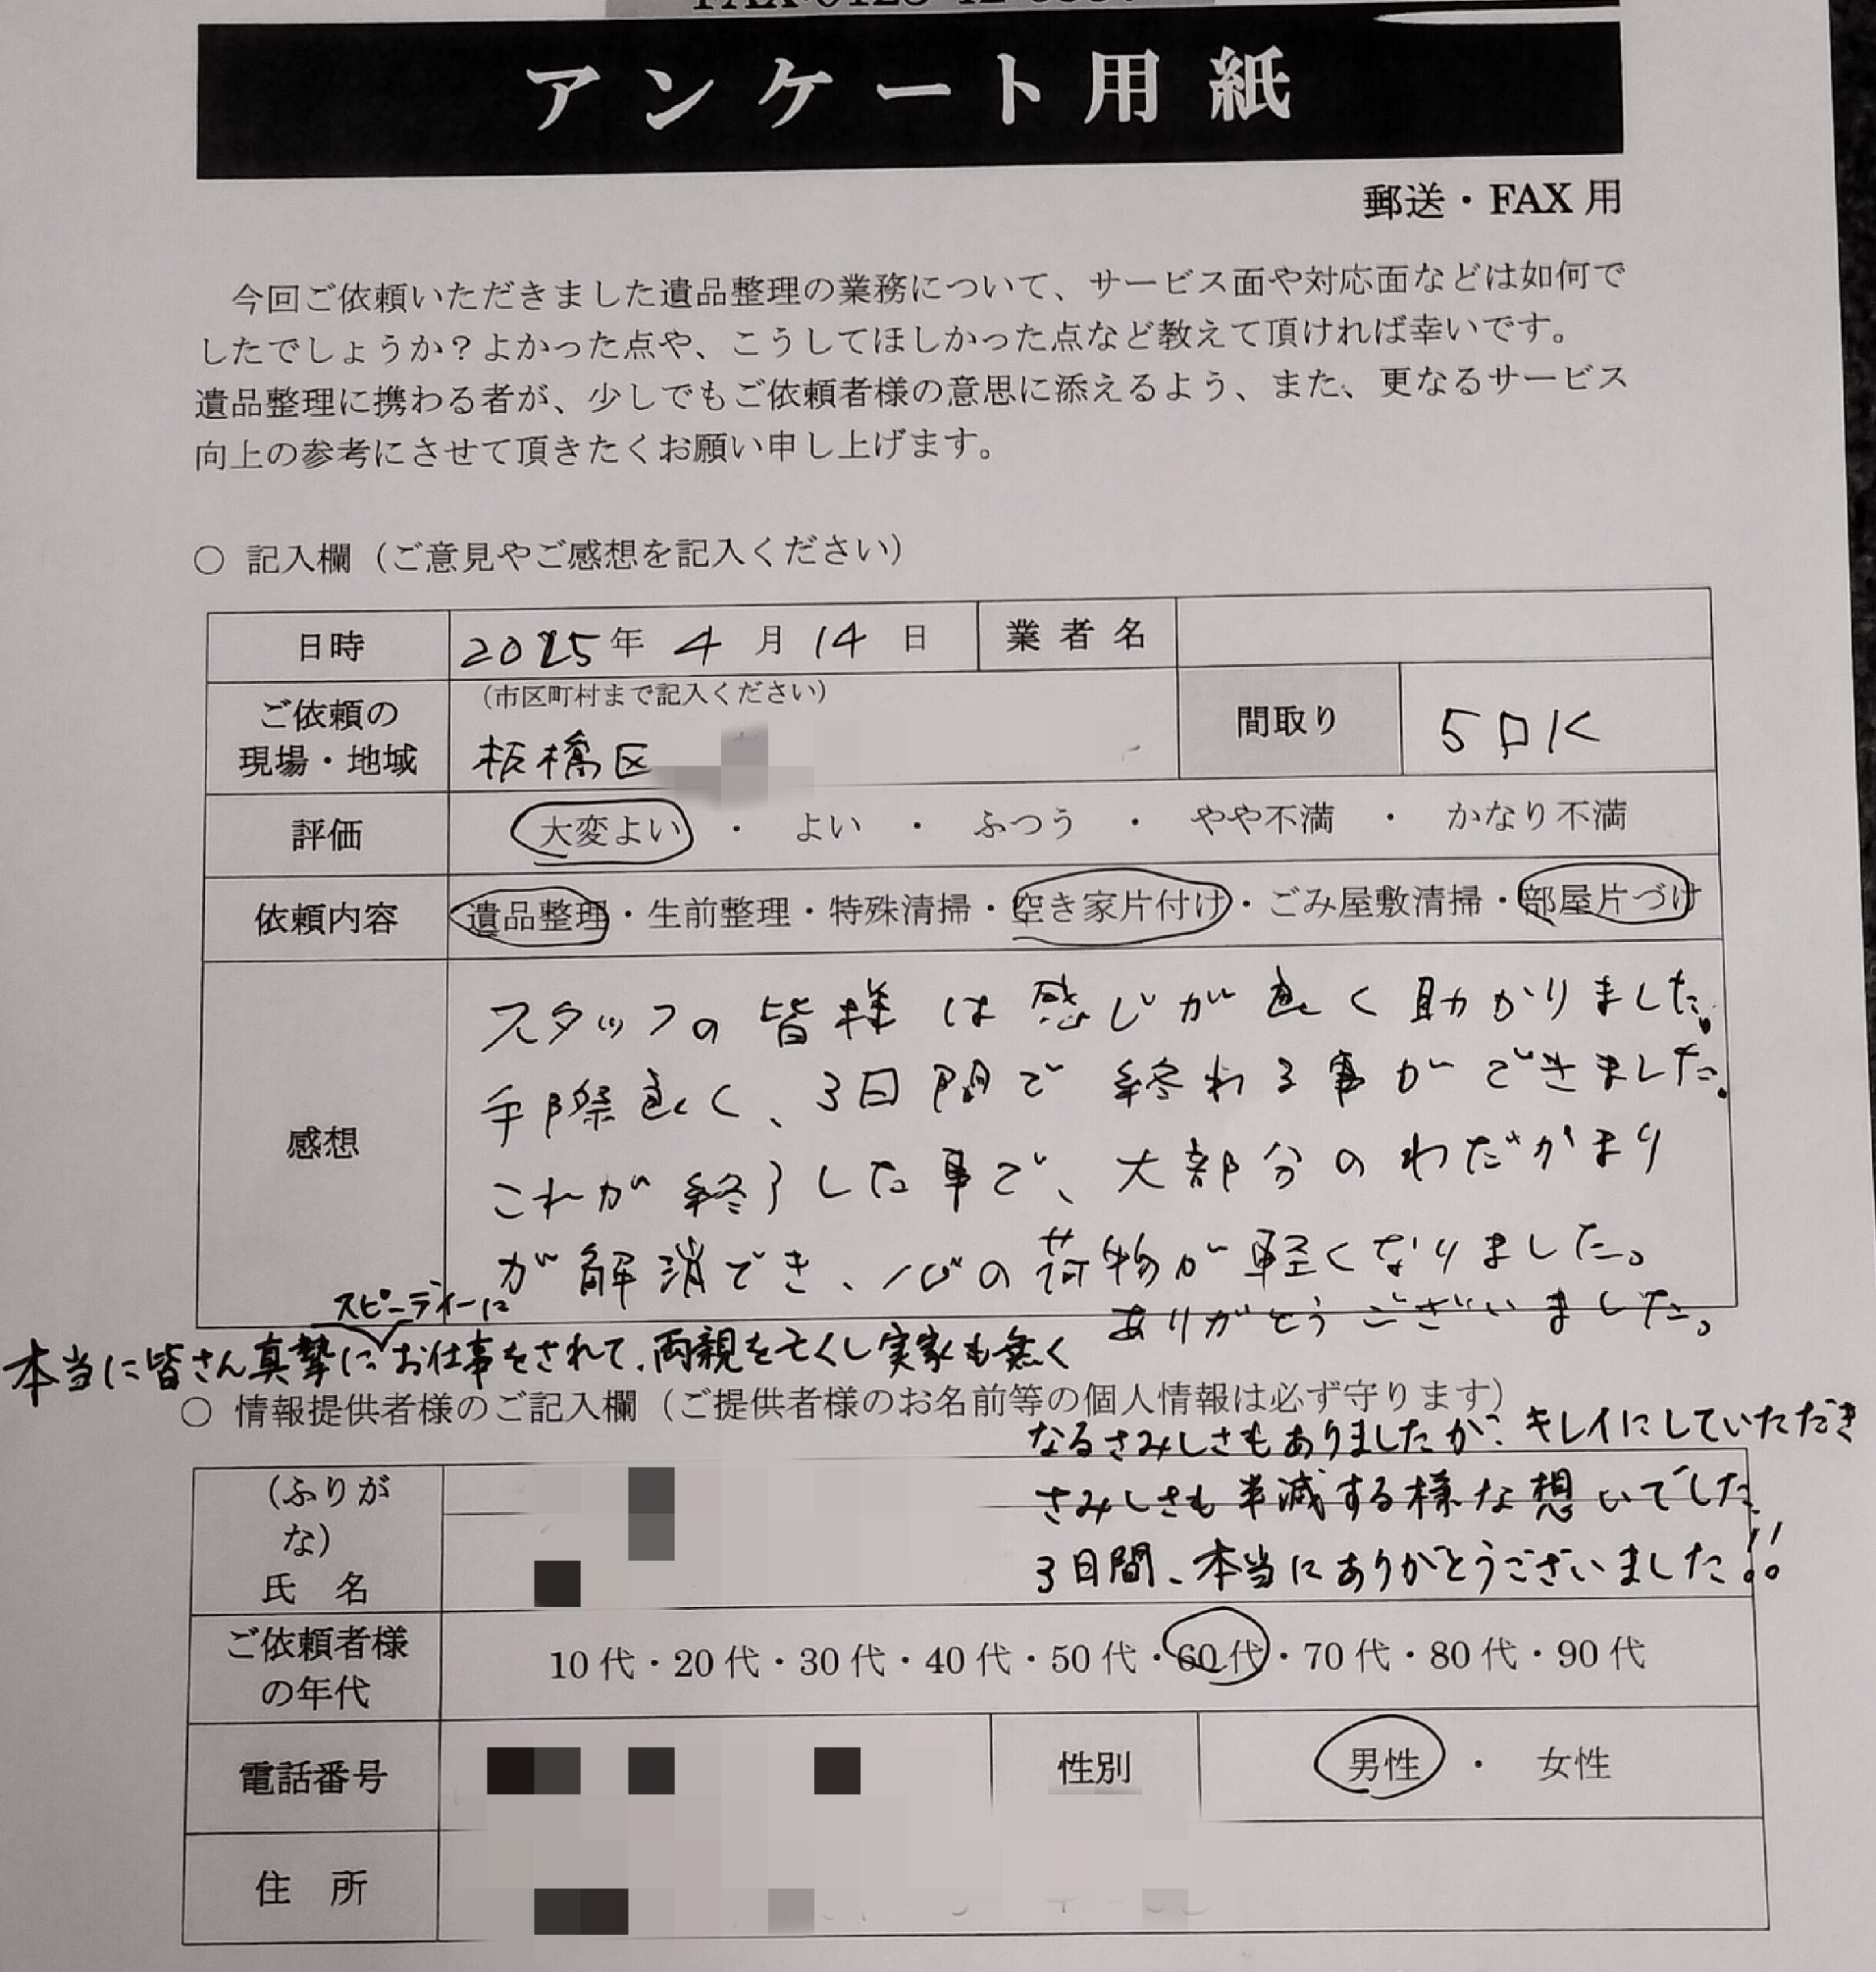 アンケート用紙
郵送・FAX用
今回ご依頼いただきました遺品整理の業務について、サービス面や対応面などは如何で
したでしょうか？よかった点や、こうしてほしかった点など教えて頂ければ幸いです。
遺品整理に携わる者が、少しでもご依頼者様の意思に添えるよう、また、更なるサービス
向上の参考にさせて頂きたくお願い申し上げます。
○ 記入欄（ご意見やご感想を記入ください）
日時 2025年 4月 14日 業者名
ご依頼の
現場・地域
（市区町村まで記入ください）
板橋区
間取り 5DK
評価 大変よい ・ よい ・ ふつう ・ やや不満 ・ かなり不満
依頼内容 遺品整理・生前整理・特殊清掃・空き家片付け・ごみ屋敷清掃・部屋片づけ
感想
スタッフの皆様は感じが良く助かりました。
手際良く、3日間で終われる事ができました。
これが終了した事で、大部分のわだかまり
が解消でき、心の荷物が軽くなりました。
ありがとうございました。
スピーディーに
本当に皆さん真摯にお仕事をされて、両親を亡くし実家も無く
○ 情報提供者様のご記入欄（ご提供者様のお名前等の個人情報は必ず守ります）
なるさみしさもありましたが、キレイにしていただき
さみしさも半減する様な想いでした
3日間、本当にありがとうございました!!
（ふりが
な）
氏 名
ご依頼者様
の年代
10代・20代・30代・40代・50代・60代・70代・80代・90代
電話番号 性別 男性 ・ 女性
住 所